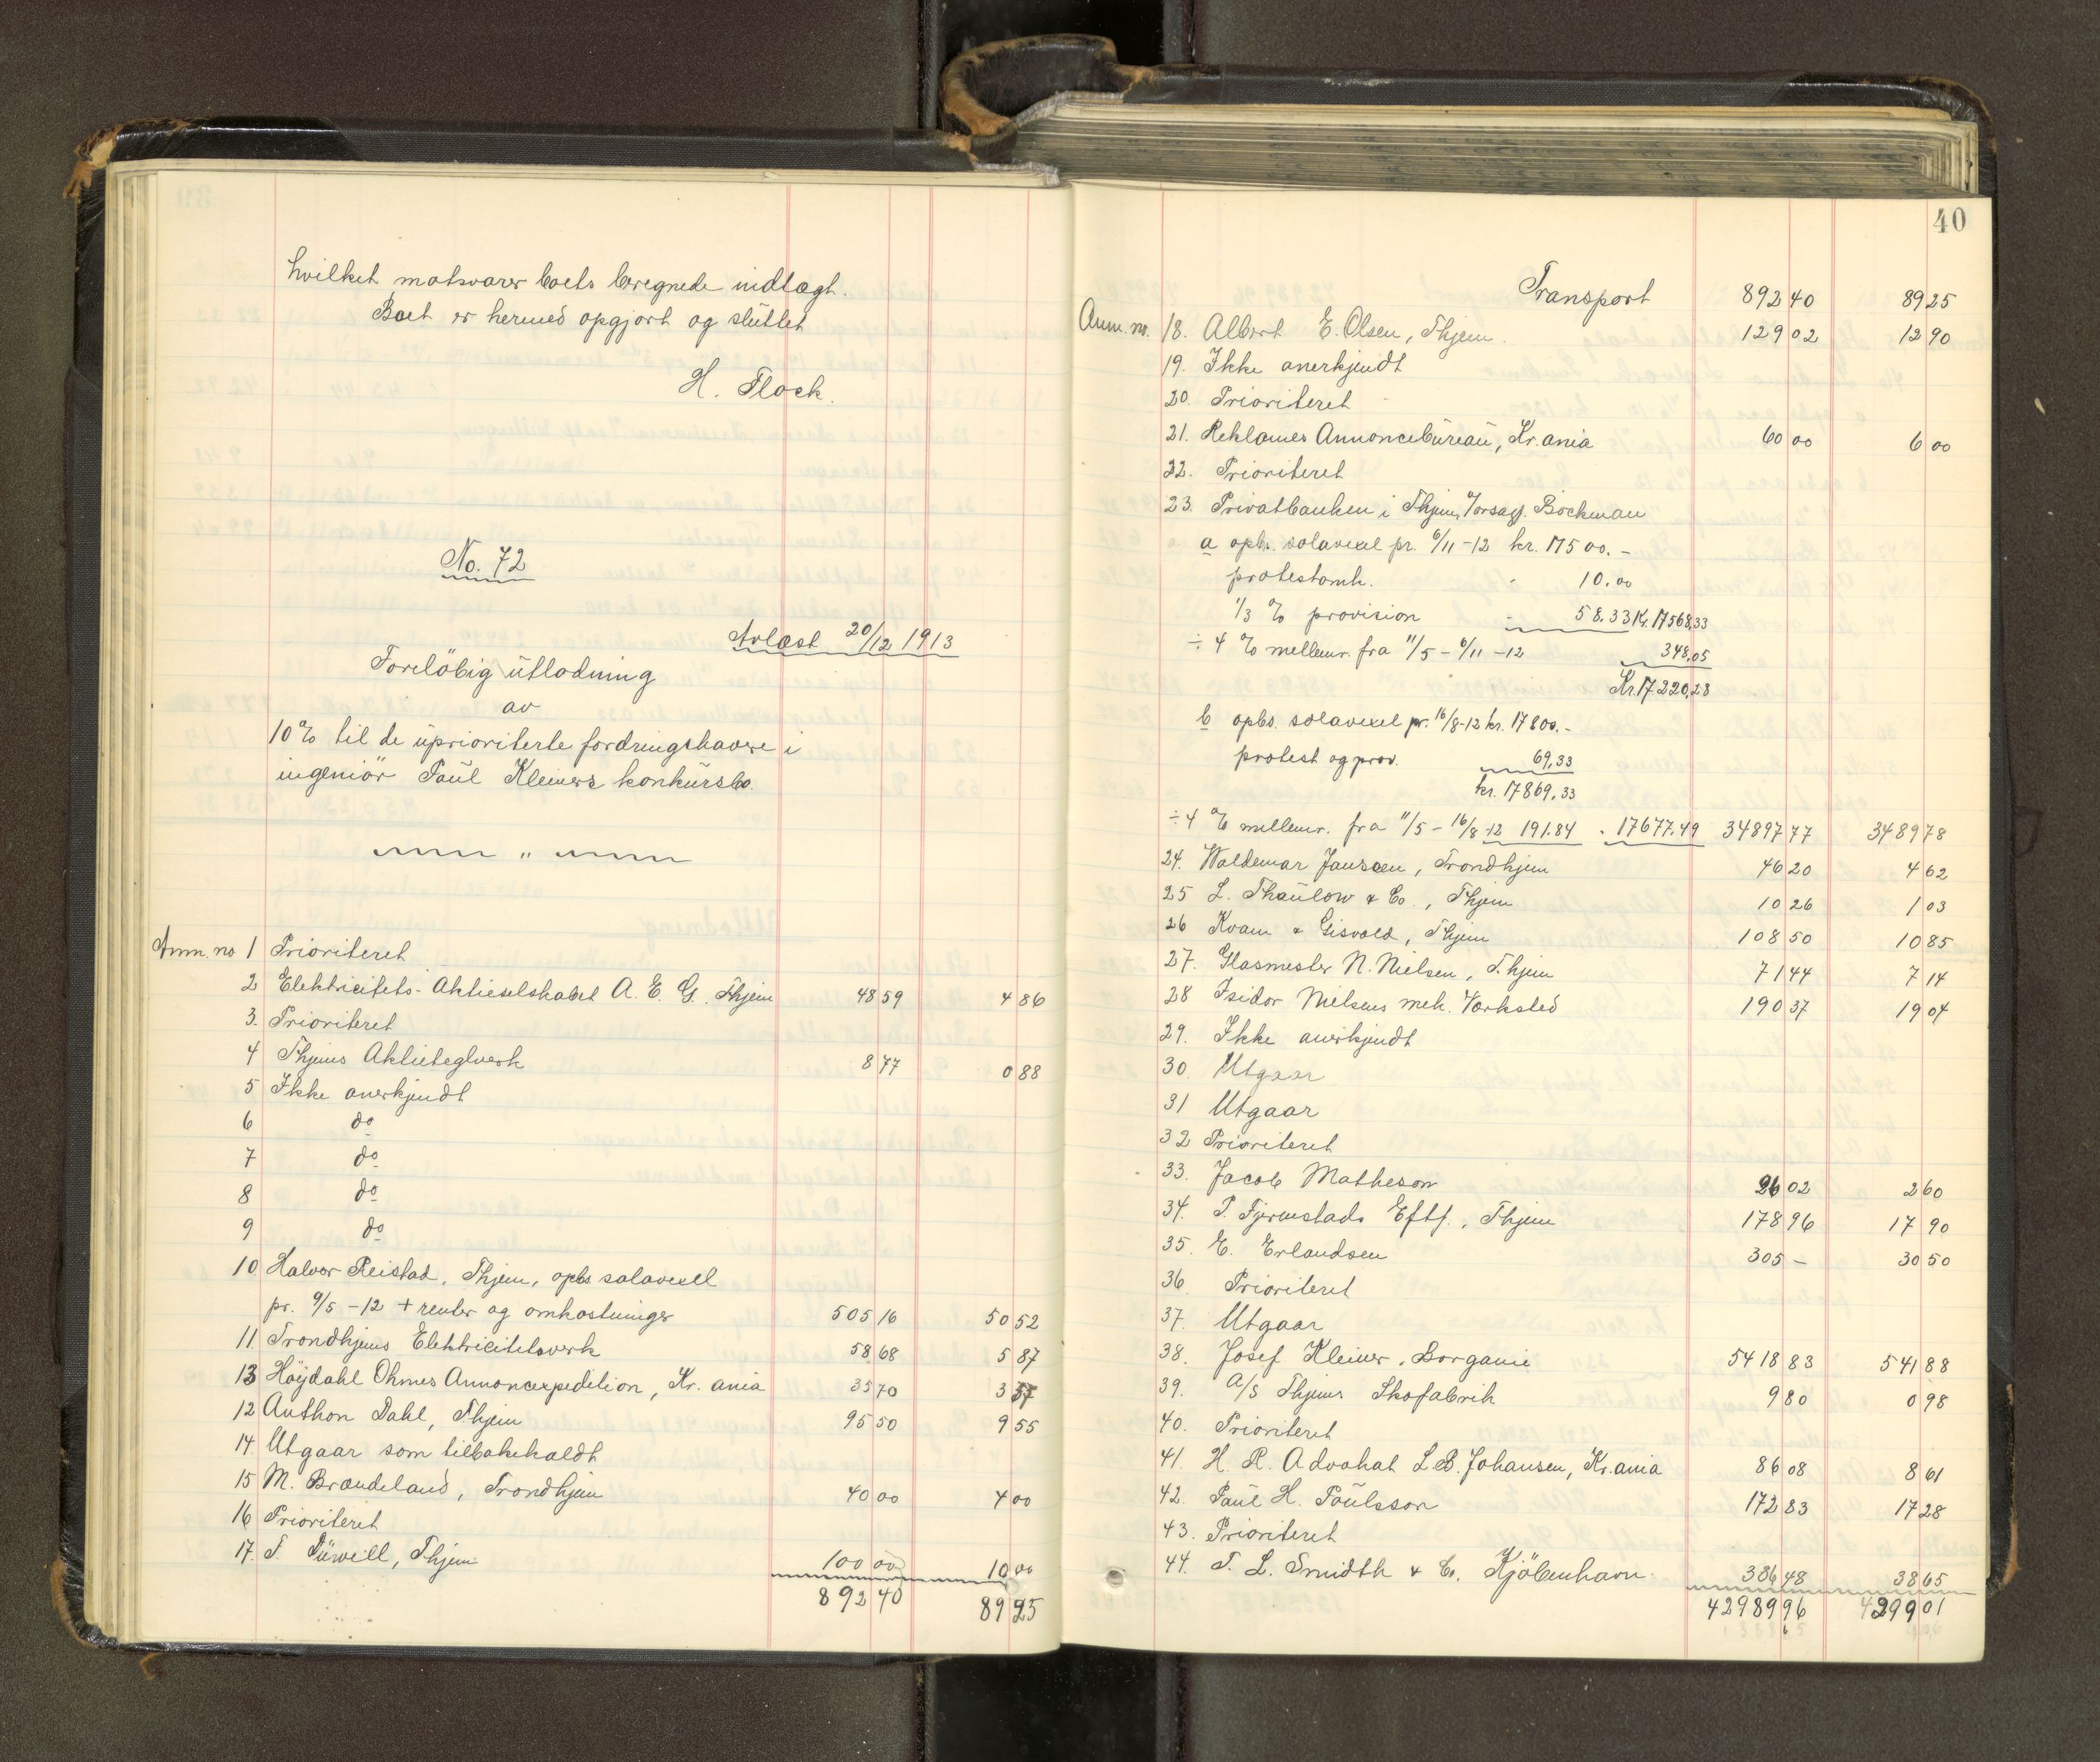 hvilket motsvarer boets beregnede indtægt.
Boet er hermed opgjort og sluttet
H. Flock.
No. 72
Avlæst 20/12 1913
Foreløbig utlodning
av
10% til de uprioriterte fordringshavere i
ingeniör Paul Kleiners konkursbo.
"
Anm. no 1 Prioriteret
2 Elektricitets-Aktieselskabet A. E. G. Thjem 48 59 4 86
3. Prioriteret
4 Thjems Aktieteglverk 8 77 0 88
5 Ikke anerkjendt
6 do
7 do
8 do
9 do
10 Halvor Reistad, Thjem, opbs solavexel
pr. 9/5 - 12 + renter og omkostninger 505 16 50 52
11. Trondhjems Elektricitetsverk 58 68 5 87
13 Höydahl Ohmes Annoncexpedition, Kr. ania 35 70 3 57
12 Anthon Dahl, Thjem 95 50 9 55
14. Utgaar som tilbakekaldt
15 M. Brændeland, Trondhjem 40 00 4 00
16 Prioriteret
17. T. , Thjem 100 00 10 00
892 40 89 25
40
Transport 892 40 89 25
Anm. no. 18. Albert E. Olsen, Thjem. 129 02 12 90
19. Ikke anerkjendt
20. Prioriteret
21. Reklames Annoncebureau, Kr. ania 60 00 6 00
22. Prioriteret
23. Privatbanken i Thjem, v/orsagf. Böckman
a opbs. solavexel pr. 6/11 - 12 kr. 17500. -
protestomk. 10.00
1/3 % provision 58.33 Kr. 17568,33
÷ 4 % mellemr. fra 11/5 - 6/11 - 12 348,05
Kr. 17220,28
b opbs. solavexel pr. 16/8-12 kr. 17800. -
protest og prov. 69,33
kr. 17869,33
÷ 4 % mellemr. fra 11/5 - 16/8 - 12 191.84 17677.49 34897 77 3489 78
24. Waldemar Janssen, Trondhjem 46 20 4 62
25 L. Thaulow & Co., Thjem 10 26 1 03
26 Kvam & Gisvold, Thjem 108 50 10 85
27. Glasmester N. Nielsen, T.hjem 71 44 7 14
28 Isidor Nielsens mek. Værksted 190 37 19 04
29. Ikke anerkjendt
30. Utgaar
31 Utgaar
32 Prioriteret
33. Jacob Matheson 26 02 2 60
34. P. Fjermstads Eftf., Thjem 178 96 17 90
35. E. Erlandsen 305 - 30 50
36. Prioriteret
37. Utgaar
38. Josef Kleiner, Borganie 5418 83 541 88
39. A/S Thjems Skofabrik 9 80 0 98
40. Prioriteret
41. H. R. Advokat L. B. Johansen, Kr. ania 86 08 8 61
42. Paul H. Poulsson 172 83 17 28
43. Prioriteret
44. F. L. Smidth & Co. Kjöbenhavn 386 48 38 65
42989 96 4299 01